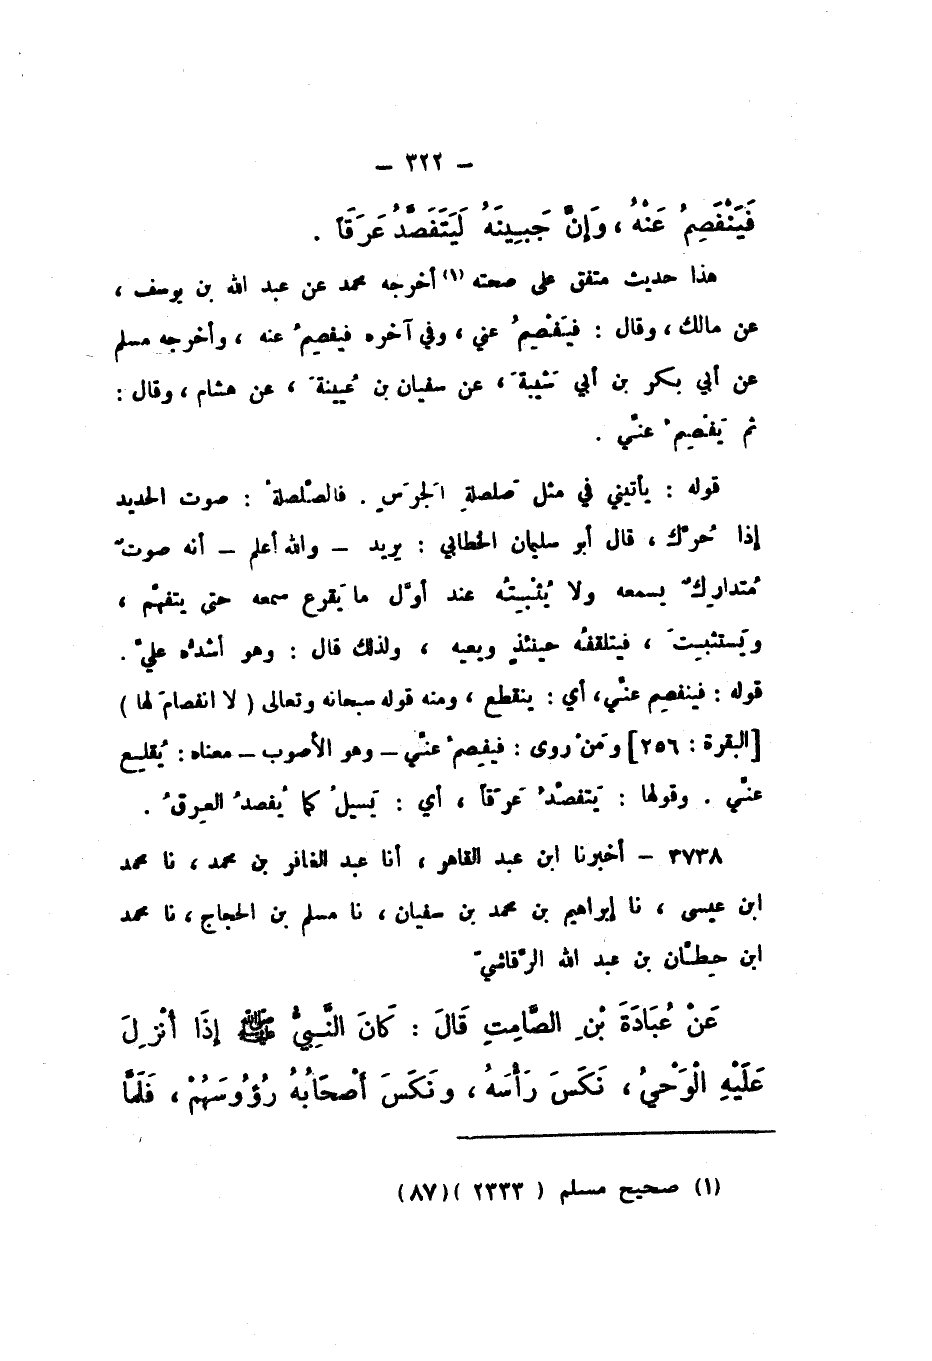 – ٣٢٢ –
فَيَنْفَصِمُ عَنْهُ ، وَإِنَّ جَبِينَهُ لَيَتَفَصَّدُ عَرَقَاً .
هذا حديث متفق على صحته (١) أخرجه محمد عن عبد الله بن يوسف ،
عن مالك ، وقال : فيَنفْصِمُ عني ، وفي آخره فيفصِمُ عنه ، وأخرجه مسلم
عن أبي بكر بن أبي شَيْبةَ ، عن سفيان بن عُيينةَ ، عن هشام ، وقال :
ثم يَفْصِمُ عنّي .
قوله : يأتيني في مثل صَلصلةِ الجَرَسِ . فالصّلصلةُ : صوت الحديد
إذا حُرّك ، قال أبو سليمان الخطابي : يريد – والله أعلم – أنه صوتٌ
مُتداركٌ يسمعه ولا يُثْبِتُه عند أوّل ما يَقرع سمعه حتى يتفهّم ،
ويَستثبتَ ، فيتلقفُه حينئذٍ ويعيه ، ولذلك قال : وهو أشدُّه عليّ .
قوله : فينفصم عنّي ، أي : ينقطع ، ومنه قوله سبحانه وتعالى ( لا انفصامَ لها )
[البقرة : ٢٥٦] ومَنْ روى : فيفصِمُ عنّي – وهو الأصوب – معناه : يُقلِع
عنّي . وقولها : يَتفصّدُ عَرَقاً ، أي : يَسيلُ كما يُفصدُ العِرقُ .
٣٧٣٨ – أخبرنا ابن عبد القاهر ، أنا عبد الغافر بن محمد ، نا محمد
ابن عيسى ، نا إبراهيم بن محمد بن سفيان ، نا مسلم بن الحجاج ، نا محمد
ابن حِطّان بن عبد الله الرّقاشيّ
عَنْ عُبَادَةَ بْنِ الصَّامِتِ قَالَ : كَانَ النَّبِيُّ ﷺ إِذَا أُنْزِلَ
عَلَيْهِ الْوَحْيُ ، نَكَسَ رَأْسَهُ ، وَنَكَسَ أَصْحَابُهُ رُؤُوسَهُمْ ، فَلَمَّا
(١) صحيح مسلم ( ٢٣٣٣ ) (٨٧)